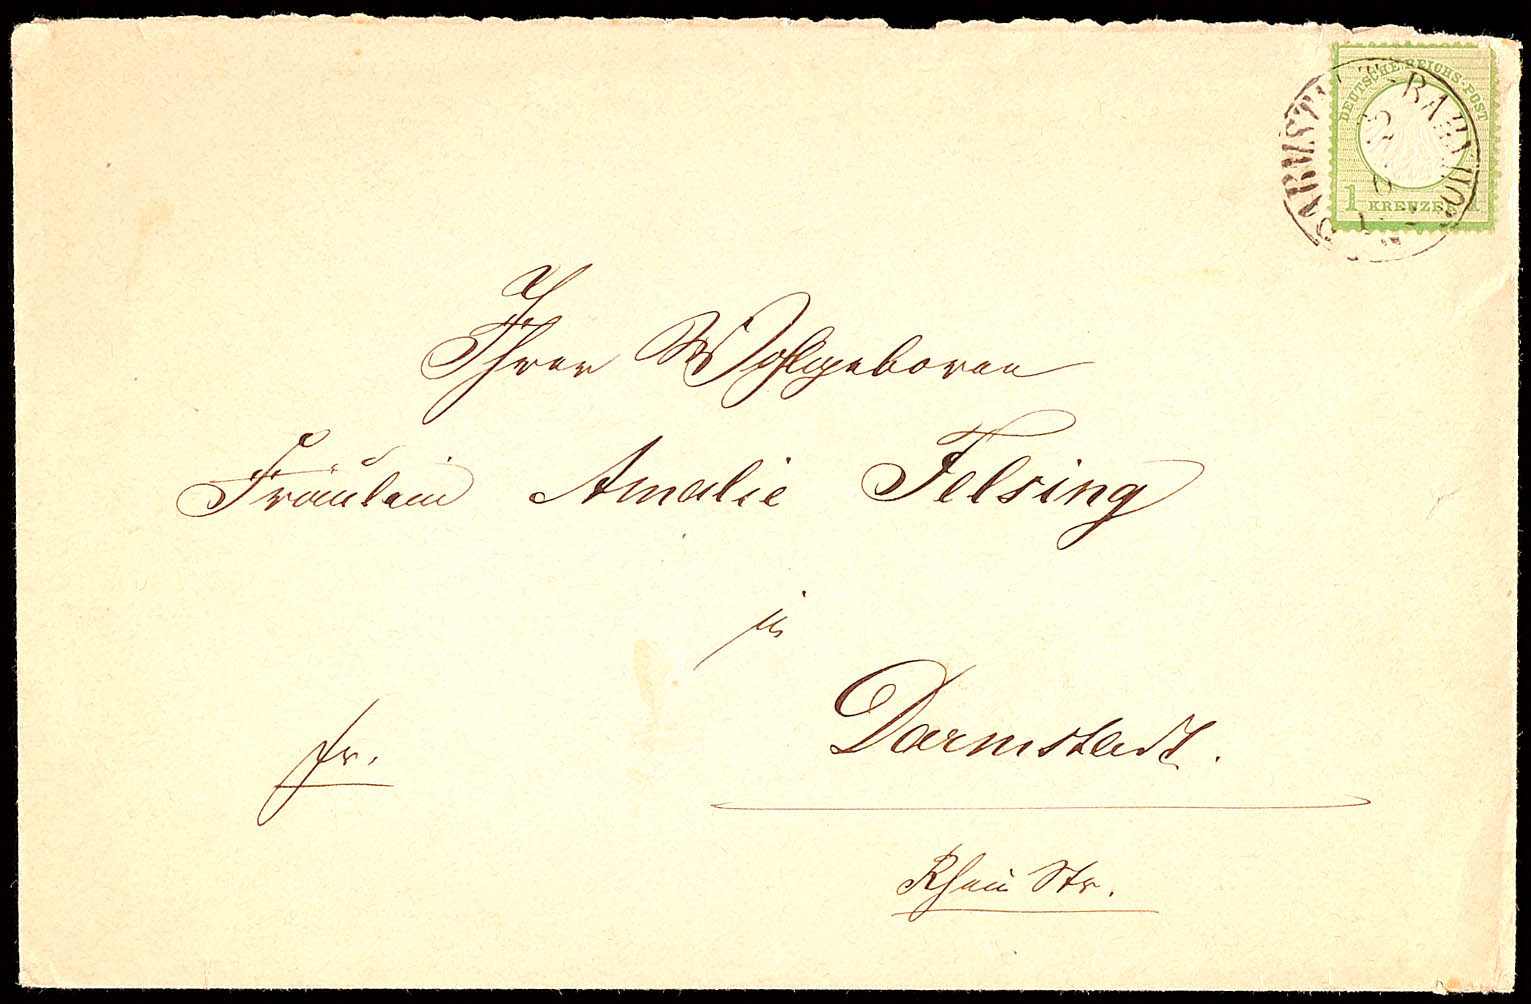 DEUTSCHE REICHS-POST
1 KREUZER 1
DARMSTADT-BAHNHOF
Ihrer Wohlgeboren
Fräulein Amalie Felsing
in
Darmstadt.
fr.
Rhein Str.